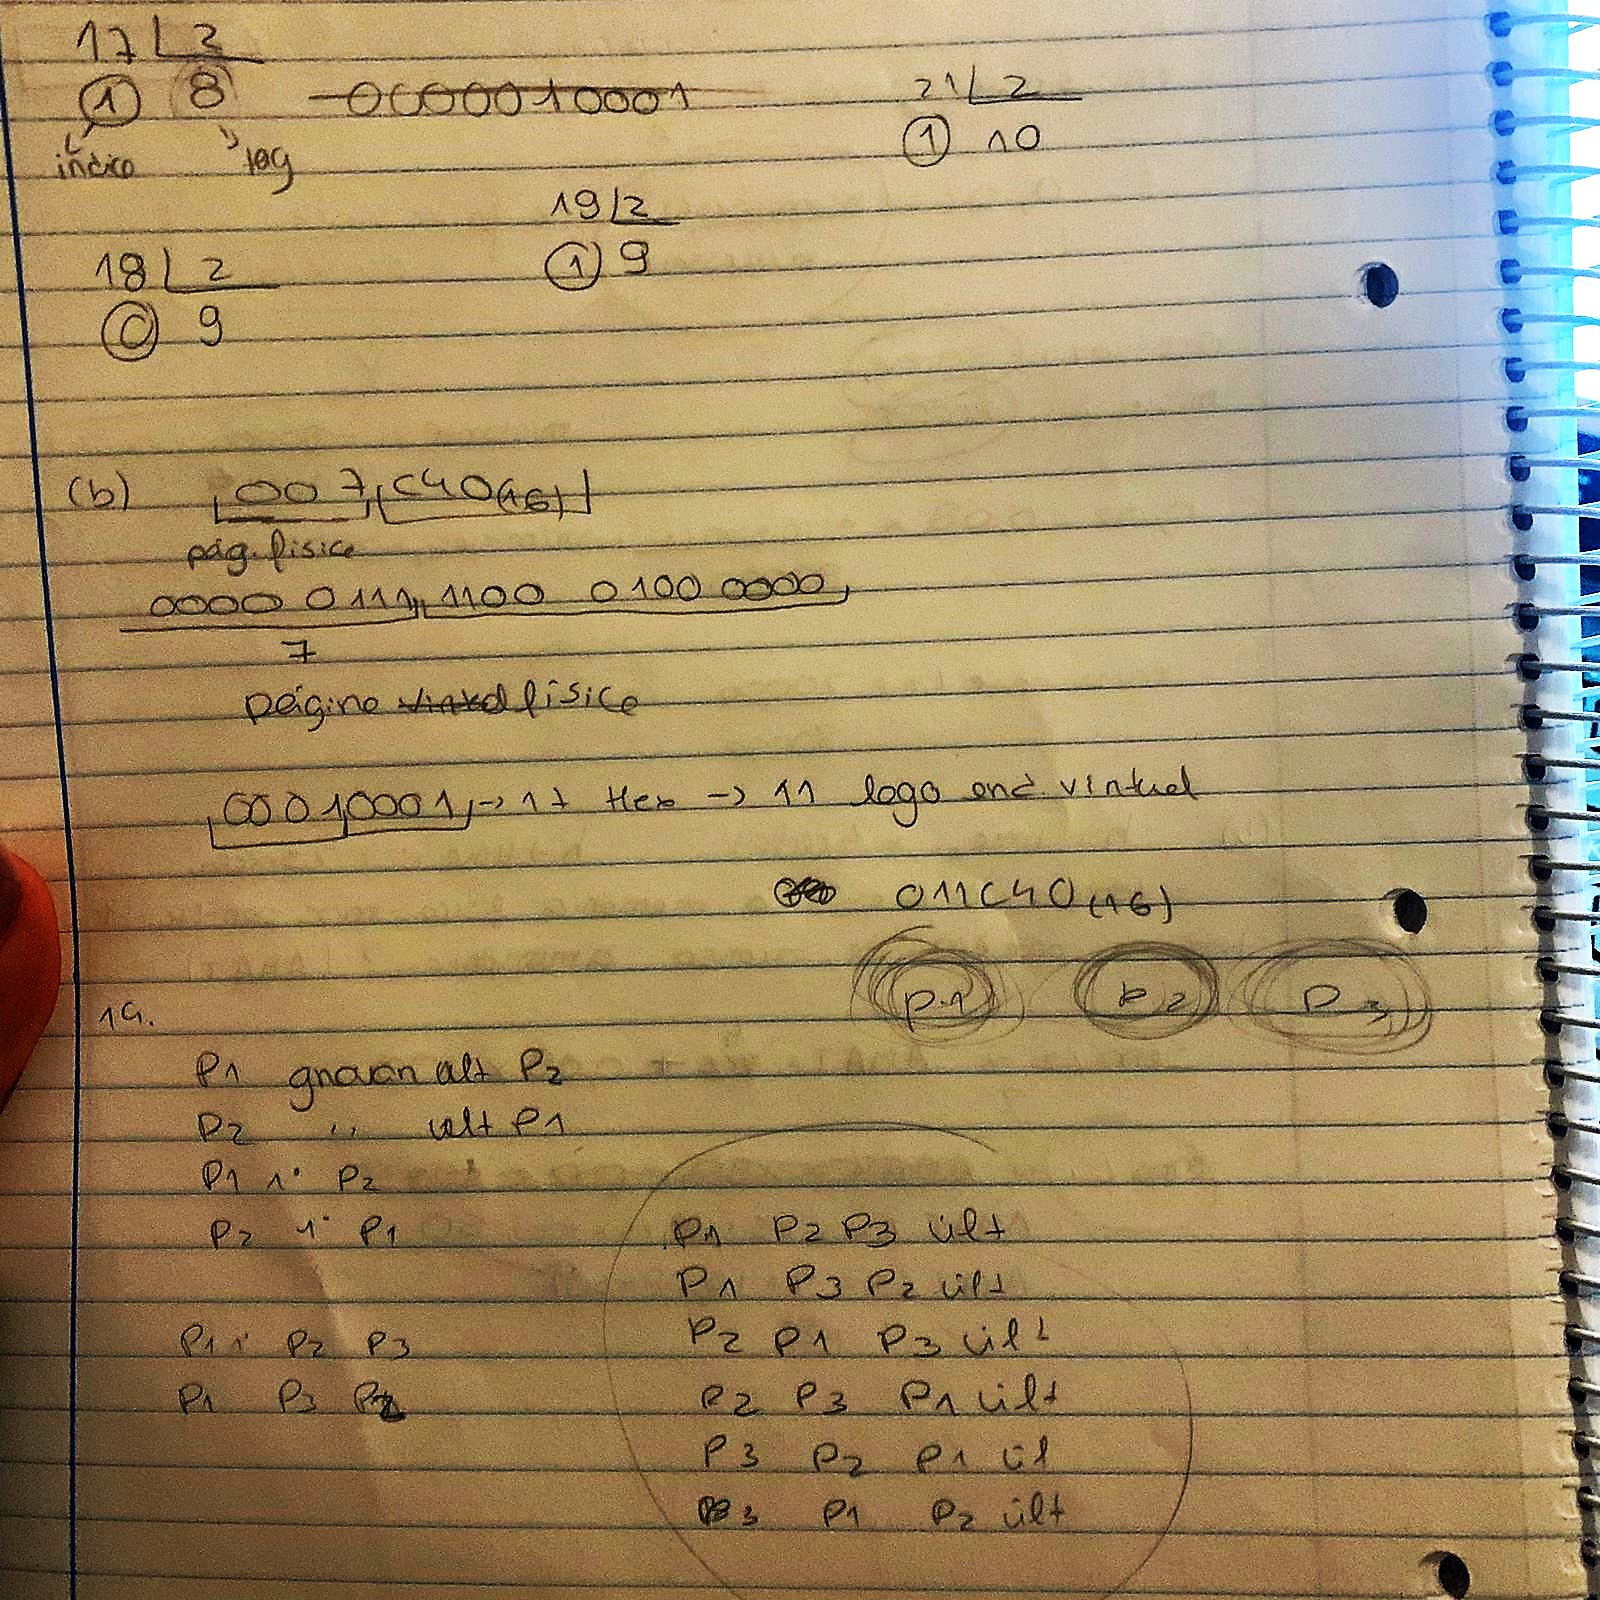 17 2
1 8 0000010001
índice tag
21 2
1 10
19 2
1 9
18 2
0 9
(b) 007 C40(16)
pág. física
0000 0111 1100 0100 0000
7
página virtual física
00010001 → 17 Hex → 11 logo end virtual
011C40(16)
P1 P2 P3
P1 gravar alt P2
P2 " alt P1
P1 " P2
P2 " P1
P1 " P2 P3
P1 P3 P2
P1 P2 P3 últ
P1 P3 P2 últ
P2 P1 P3 últ
P2 P3 P1 últ
P3 P2 P1 úl
P3 P1 P2 últ